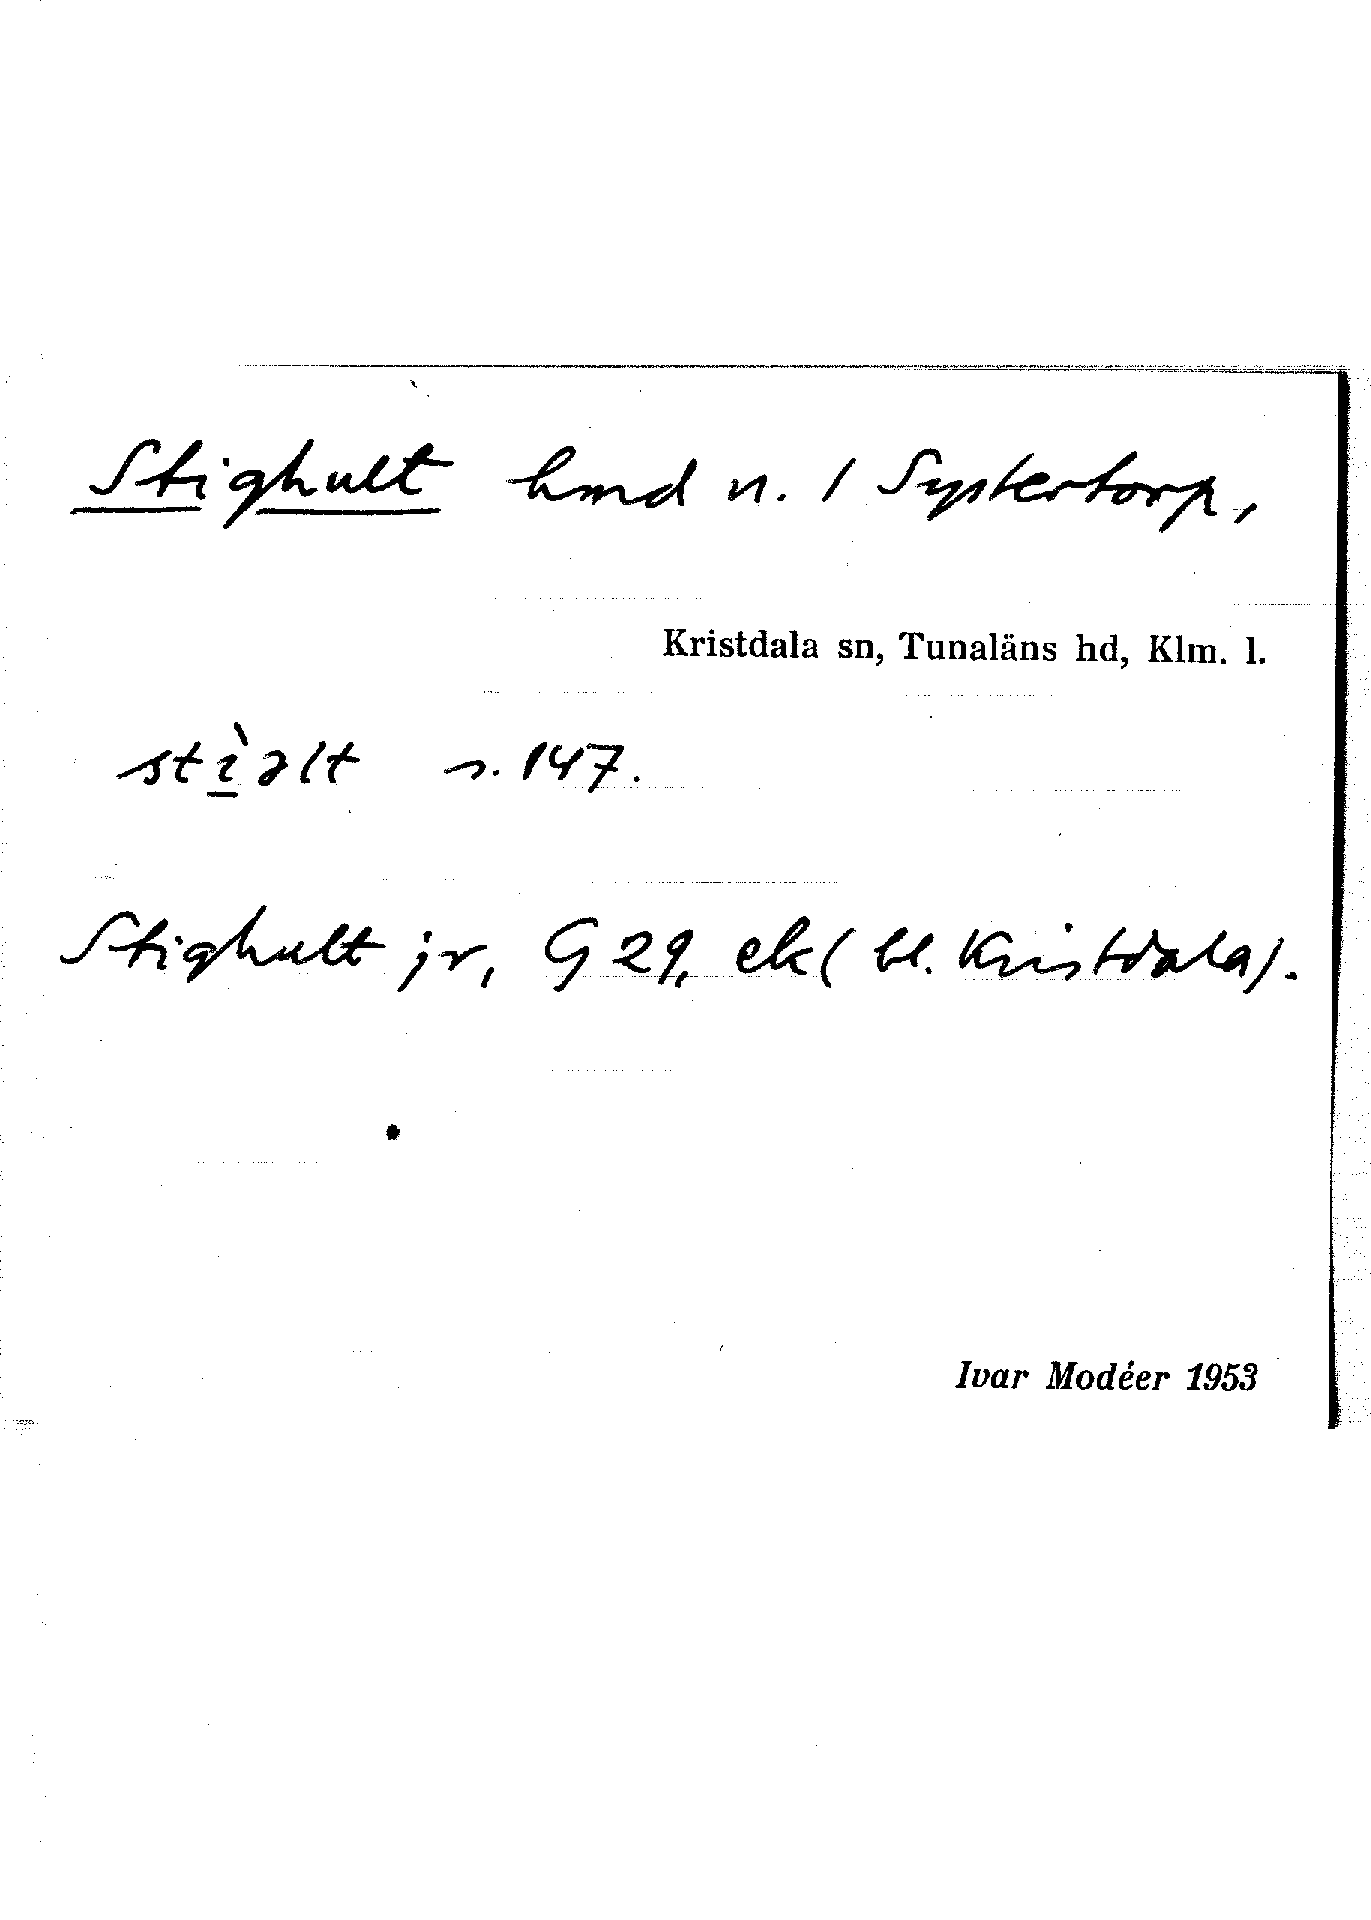 Stighult hmd n. 1 Systertorp,
Kristdala sn, Tunaläns hd, Klm. l.
stìəlt s. 147.
Stighult jr, G 29, ek (bl. Kristdala).
Ivar Modéer 1953